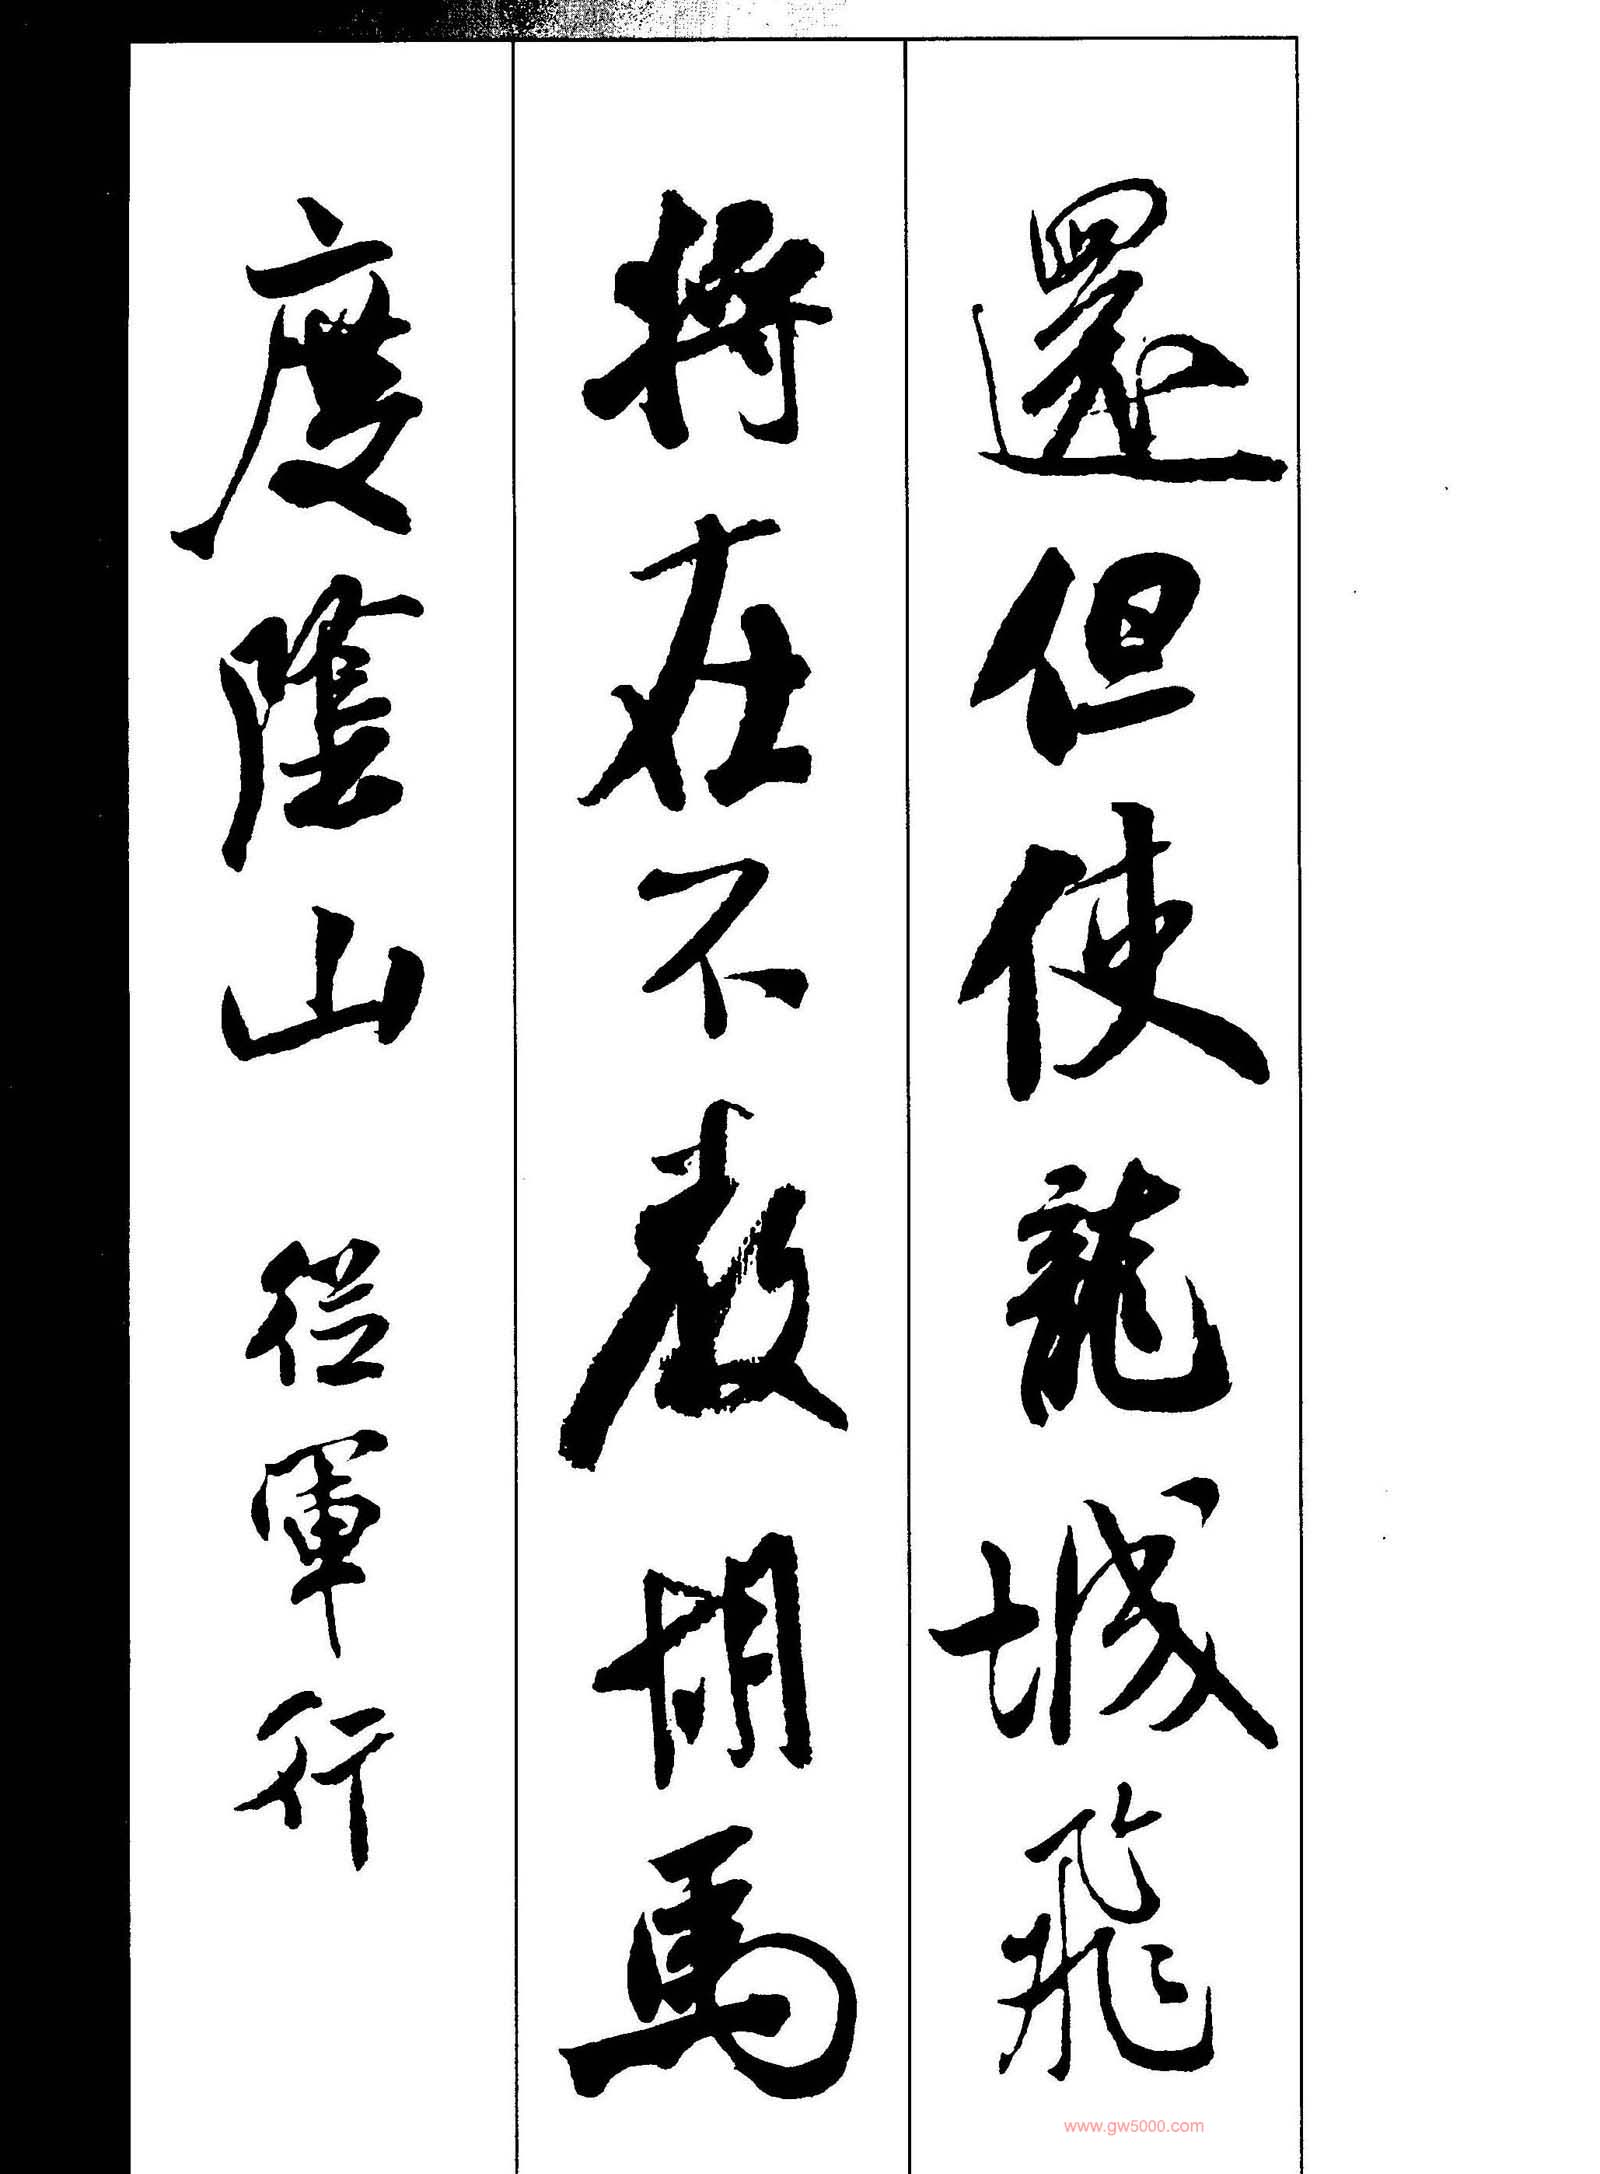 還但使龍城飛
將在不教胡馬
度陰山 從軍行
www.gw5000.com